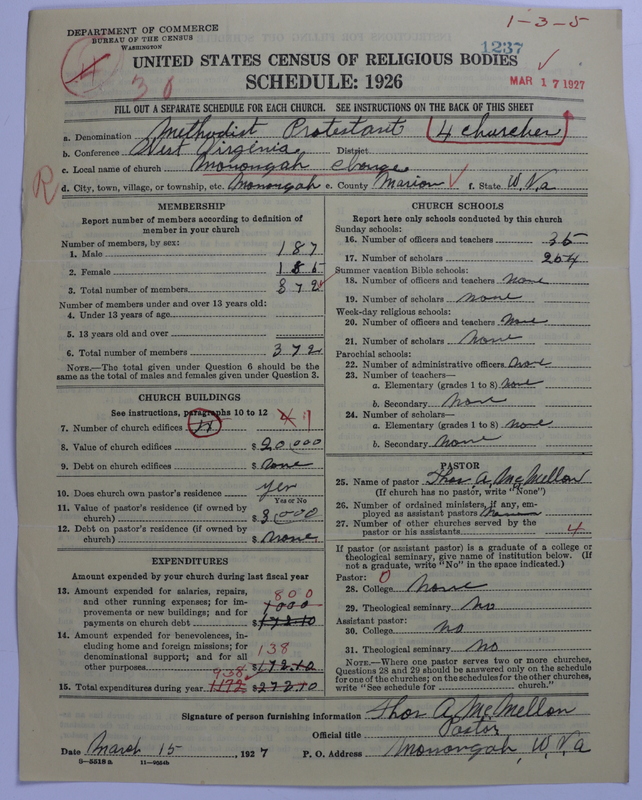 1-3-5
DEPARTMENT OF COMMERCE
BUREAU OF THE CENSUS
WASHINGTON
1237
UNITED STATES CENSUS OF RELIGIOUS BODIES
MAR 17 1927
30
SCHEDULE: 1926
FILL OUT A SEPARATE SCHEDULE FOR EACH CHURCH. SEE INSTRUCTIONS ON THE BACK OF THIS SHEET
a. Denomination Methodist Protestant (4 churches)
b. Conference West Virginia District
c. Local name of church Monongah charge
R
d. City, town, village, or township, etc. Monongah e. County Marion f. State W. Va
MEMBERSHIP
Report number of members according to definition of member in your church
Number of members, by sex:
1. Male 187
2. Female 185
3. Total number of members 372
Number of members under and over 13 years old:
4. Under 13 years of age
5. 13 years old and over
6. Total number of members 372
NOTE.—The total given under Question 6 should be the same as the total of males and females given under Question 3.
CHURCH BUILDINGS
See instructions, paragraphs 10 to 12
7. Number of church edifices
8. Value of church edifices $ 20,000
9. Debt on church edifices $ none
10. Does church own pastor's residence yes
Yes or No
11. Value of pastor's residence (if owned by church) $ 3,000
12. Debt on pastor's residence (if owned by church) $ none
EXPENDITURES
Amount expended by your church during last fiscal year
13. Amount expended for salaries, repairs, and other running expenses; for improvements or new buildings; and for payments on church debt 800 1000
14. Amount expended for benevolences, including home and foreign missions; for denominational support; and for all other purposes 138 $172.10
15. Total expenditures during year 938 1172 $
CHURCH SCHOOLS
Report here only schools conducted by this church
Sunday schools:
16. Number of officers and teachers 35
17. Number of scholars 264
Summer vacation Bible schools:
18. Number of officers and teachers none
19. Number of scholars none
Week-day religious schools:
20. Number of officers and teachers none
21. Number of scholars none
Parochial schools:
22. Number of administrative officers none
23. Number of teachers—
a. Elementary (grades 1 to 8) none
b. Secondary none
24. Number of scholars—
a. Elementary (grades 1 to 8) none
b. Secondary none
PASTOR
25. Name of pastor Thos A. McMellon
(If church has no pastor, write "None")
26. Number of ordained ministers, if any, employed as assistant pastors
27. Number of other churches served by the pastor or his assistants 4
If pastor (or assistant pastor) is a graduate of a college or theological seminary, give name of institution below. (If not a graduate, write "No" in the space indicated.)
Pastor: 0
28. College none
29. Theological seminary no
Assistant pastor:
30. College no
31. Theological seminary no
NOTE.—Where one pastor serves two or more churches, Questions 28 and 29 should be answered only on the schedule for one of the churches; on the schedules for the other churches, write "See schedule for church."
Signature of person furnishing information Thos A. McMellon
Official title Pastor
Date March 15, 1927 P. O. Address Monongah, W. Va
8-5518a 11-9054b